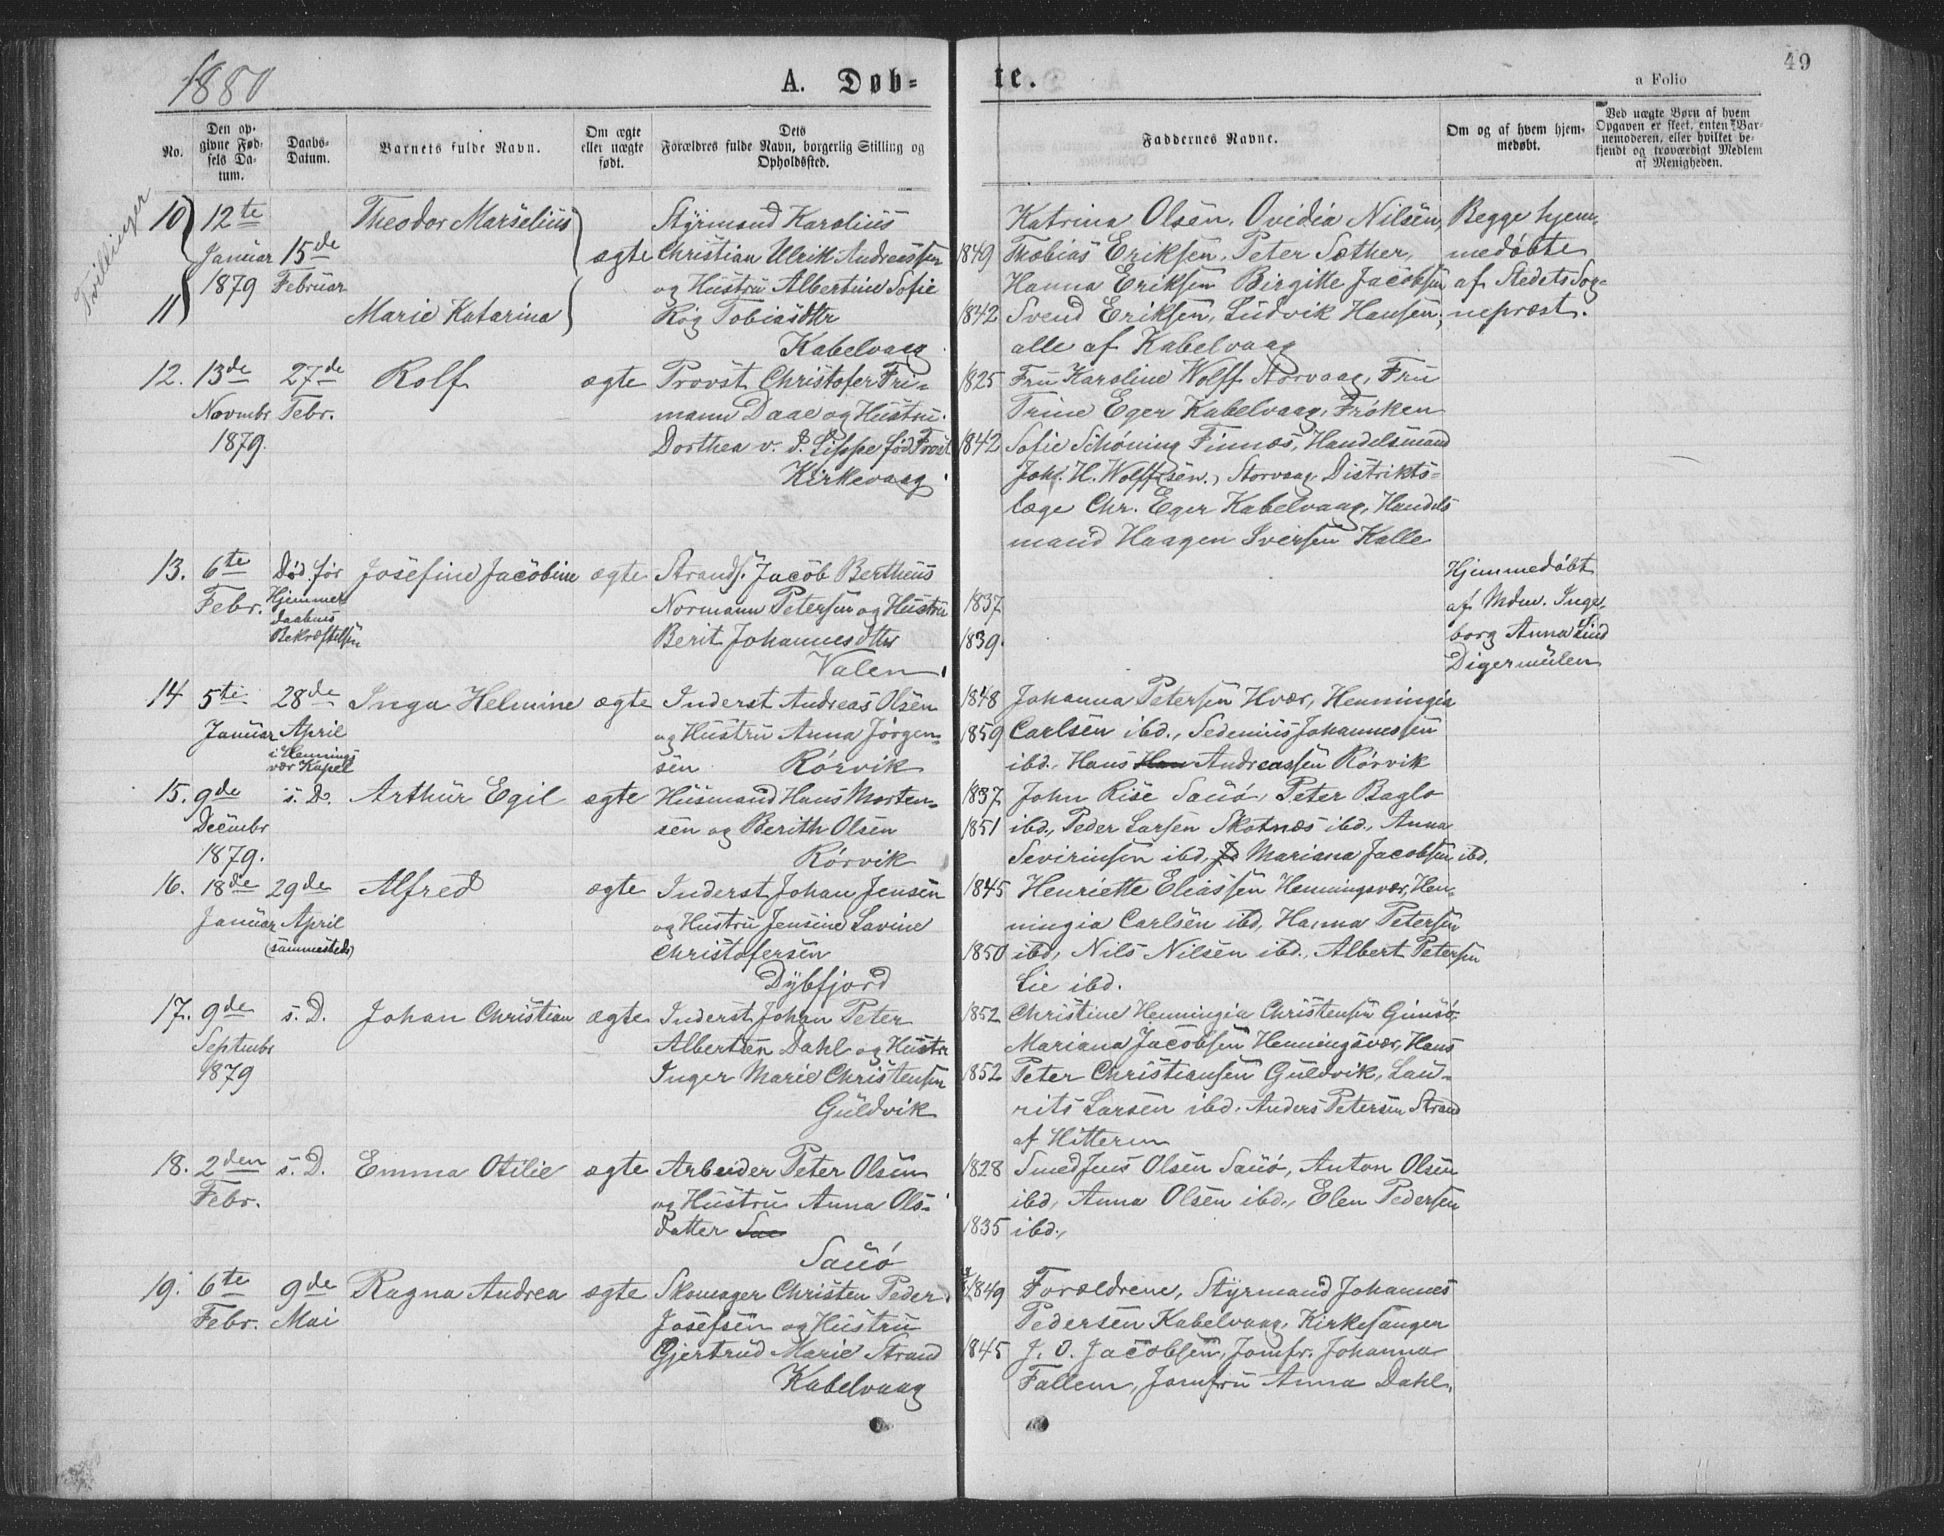 1880
A. Døb=
te.
49
a Folio
No.
Den op-
givne Fød-
sels Da-
tum.
Daabs-
Datum.
Barnets fulde Navn.
Om ægte
eller uægte
født.
Dets
Forældres fulde Navn, borgerlig Stilling og
Opholdssted.
Faddernes Navne.
Om og af hvem hjem-
medøbt.
Ved uægte Børn af hvem
Opgaven er skeet, enten Bar-
nemoderen, eller hvilket be-
kjendt og troværdigt Medlem
af Menigheden.
Tvillinger
10 12te Theodor Marselius Styrmand Karolius Katrina Olsen, Ovidia Nilsen, Begge hjem-
Januar 15de ægte Christian Ulrik Andreassen 1849 Tobias Eriksen, Peter Sæther, medøbte
1879 Februar og Hustru Albertine Sofie Hanna Eriksen Birgitte Jacobsen af Stedets Sog-
11 Marie Katarina Røg Tobiasdtr 1842 Svend Eriksen, Ludvik Hansen, nepræst.
Kabelvaag alle af Kabelvaag
12. 13de 27de Rolf ægte Provst Christofer Fri- 1825 Fru Karoline Wolff Storvaag, Fru
Novmbr Febr. mann Daae og Hustru Trine Eger Kabelvaag, Frøken
1879. Dorthea v. d. Lippe fød Frost 1842 Sofie Schøning Finnæs, Handelsmand
Kirkevaag. Joh. H. Wolff sen., Storvaag Distrikts-
læge Chr. Eger Kabelvaag, Handels
mand Haagen Iversen Kalle
13. 6te Død før Josefine Jacobine ægte Strands. Jacob Bertheus Hjemmedøbt
Febr. Hjemme- Normann Petersen og Hustru 1837 af Mdm. Inge-
daabens Berit Johannesdtr 1839. borg Anna Lind
Bekræftelsen Valen Digermulen
14 5te 28de Inga Helmine ægte Inderst Andreas Olsen 1848 Johanna Petersen Hvær, Henningia
Januar April og Hustru Anna Jørgen- 1859 Carlsen ibd., Sedenius Johannessen
i Hennings sen Rørvik ibd., Hans Han Andreassen Rørvik
vær Kapel
15. 9de s. D. Arthur Egil ægte Husmand Hans Morten- 1837 John Rise Sauø, Peter Baglo
Decmbr sen og Berith Olsen 1851 ibd., Peder Larsen Skotnæs ibd., Anna
1879. Rørvik Sevirinsen ibd, Mariana Jacobsen ibd.
16. 18de 29de Alfred ægte Inderst Johan Jensen 1845 Henriette Eliassen Henningsvær, Hen-
Januar April og Hustru Jensine Lavine ningia Carlsen ibd, Hanna Petersen
(sammesteds) Christofersen 1850 ibd, Nils Nilsen ibd., Albert Petersen
Dybfjord Lie ibd.
17. 9de s. D. Johan Christian ægte Inderst Johan Peter 1852 Christine Henningia Christensen Gimsø,
Septmbr Albertsen Dahl og Hustru Mariana Jacobsen Henningsvær, Hans
1879 Inger Marie Christensen 1852 Peter Christiansen Guldvik, Lau-
Guldvik rits Larsen ibd. Anders Petersen Strand
af Hitteren
18. 2den s. D. Emma Otilie ægte Arbeider Peter Olsen 1828 Smed Jens Olsen Sauø, Anton Olsen
Febr. og Hustru Anna Ols- ibd, Anna Olsen ibd., Elen Pedersen
datter Sau 1835 ibd.,
Sauø
19. 6te 9de Ragna Andrea ægte Skomager Christen Peder 1849 Forældrene, Styrmand Johannes
Febr. Mai Josefsen og Hustru Pedersen Kabelvaag, Kirkesanger
Gjertrud Marie Strand 1845 J. O. Jacobsen, Jomfr. Johanna
Kabelvaag Fallem, Jomfru Anna Dahl.